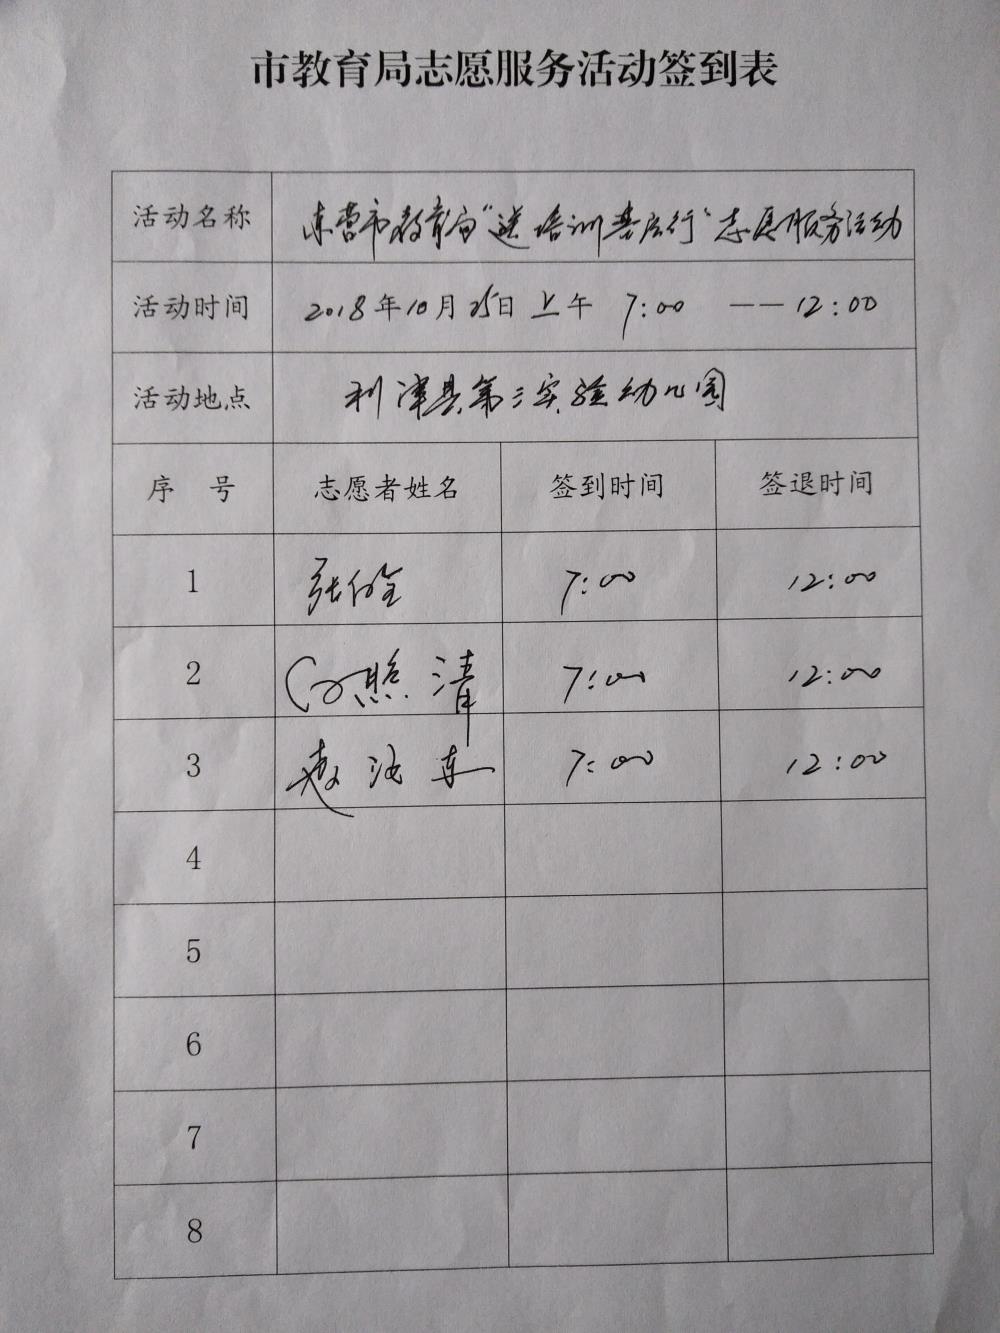 市教育局志愿服务活动签到表
活动名称 东营市教育局“送培训基层行”志愿服务活动
活动时间 2018年10月25日上午 7:00 —— 12:00
活动地点 利津县第三实验幼儿园
序 号 志愿者姓名 签到时间 签退时间
1 张 7:00 12:00
2 照清 7:00 12:00
3 东 7:00 12:00
4
5
6
7
8